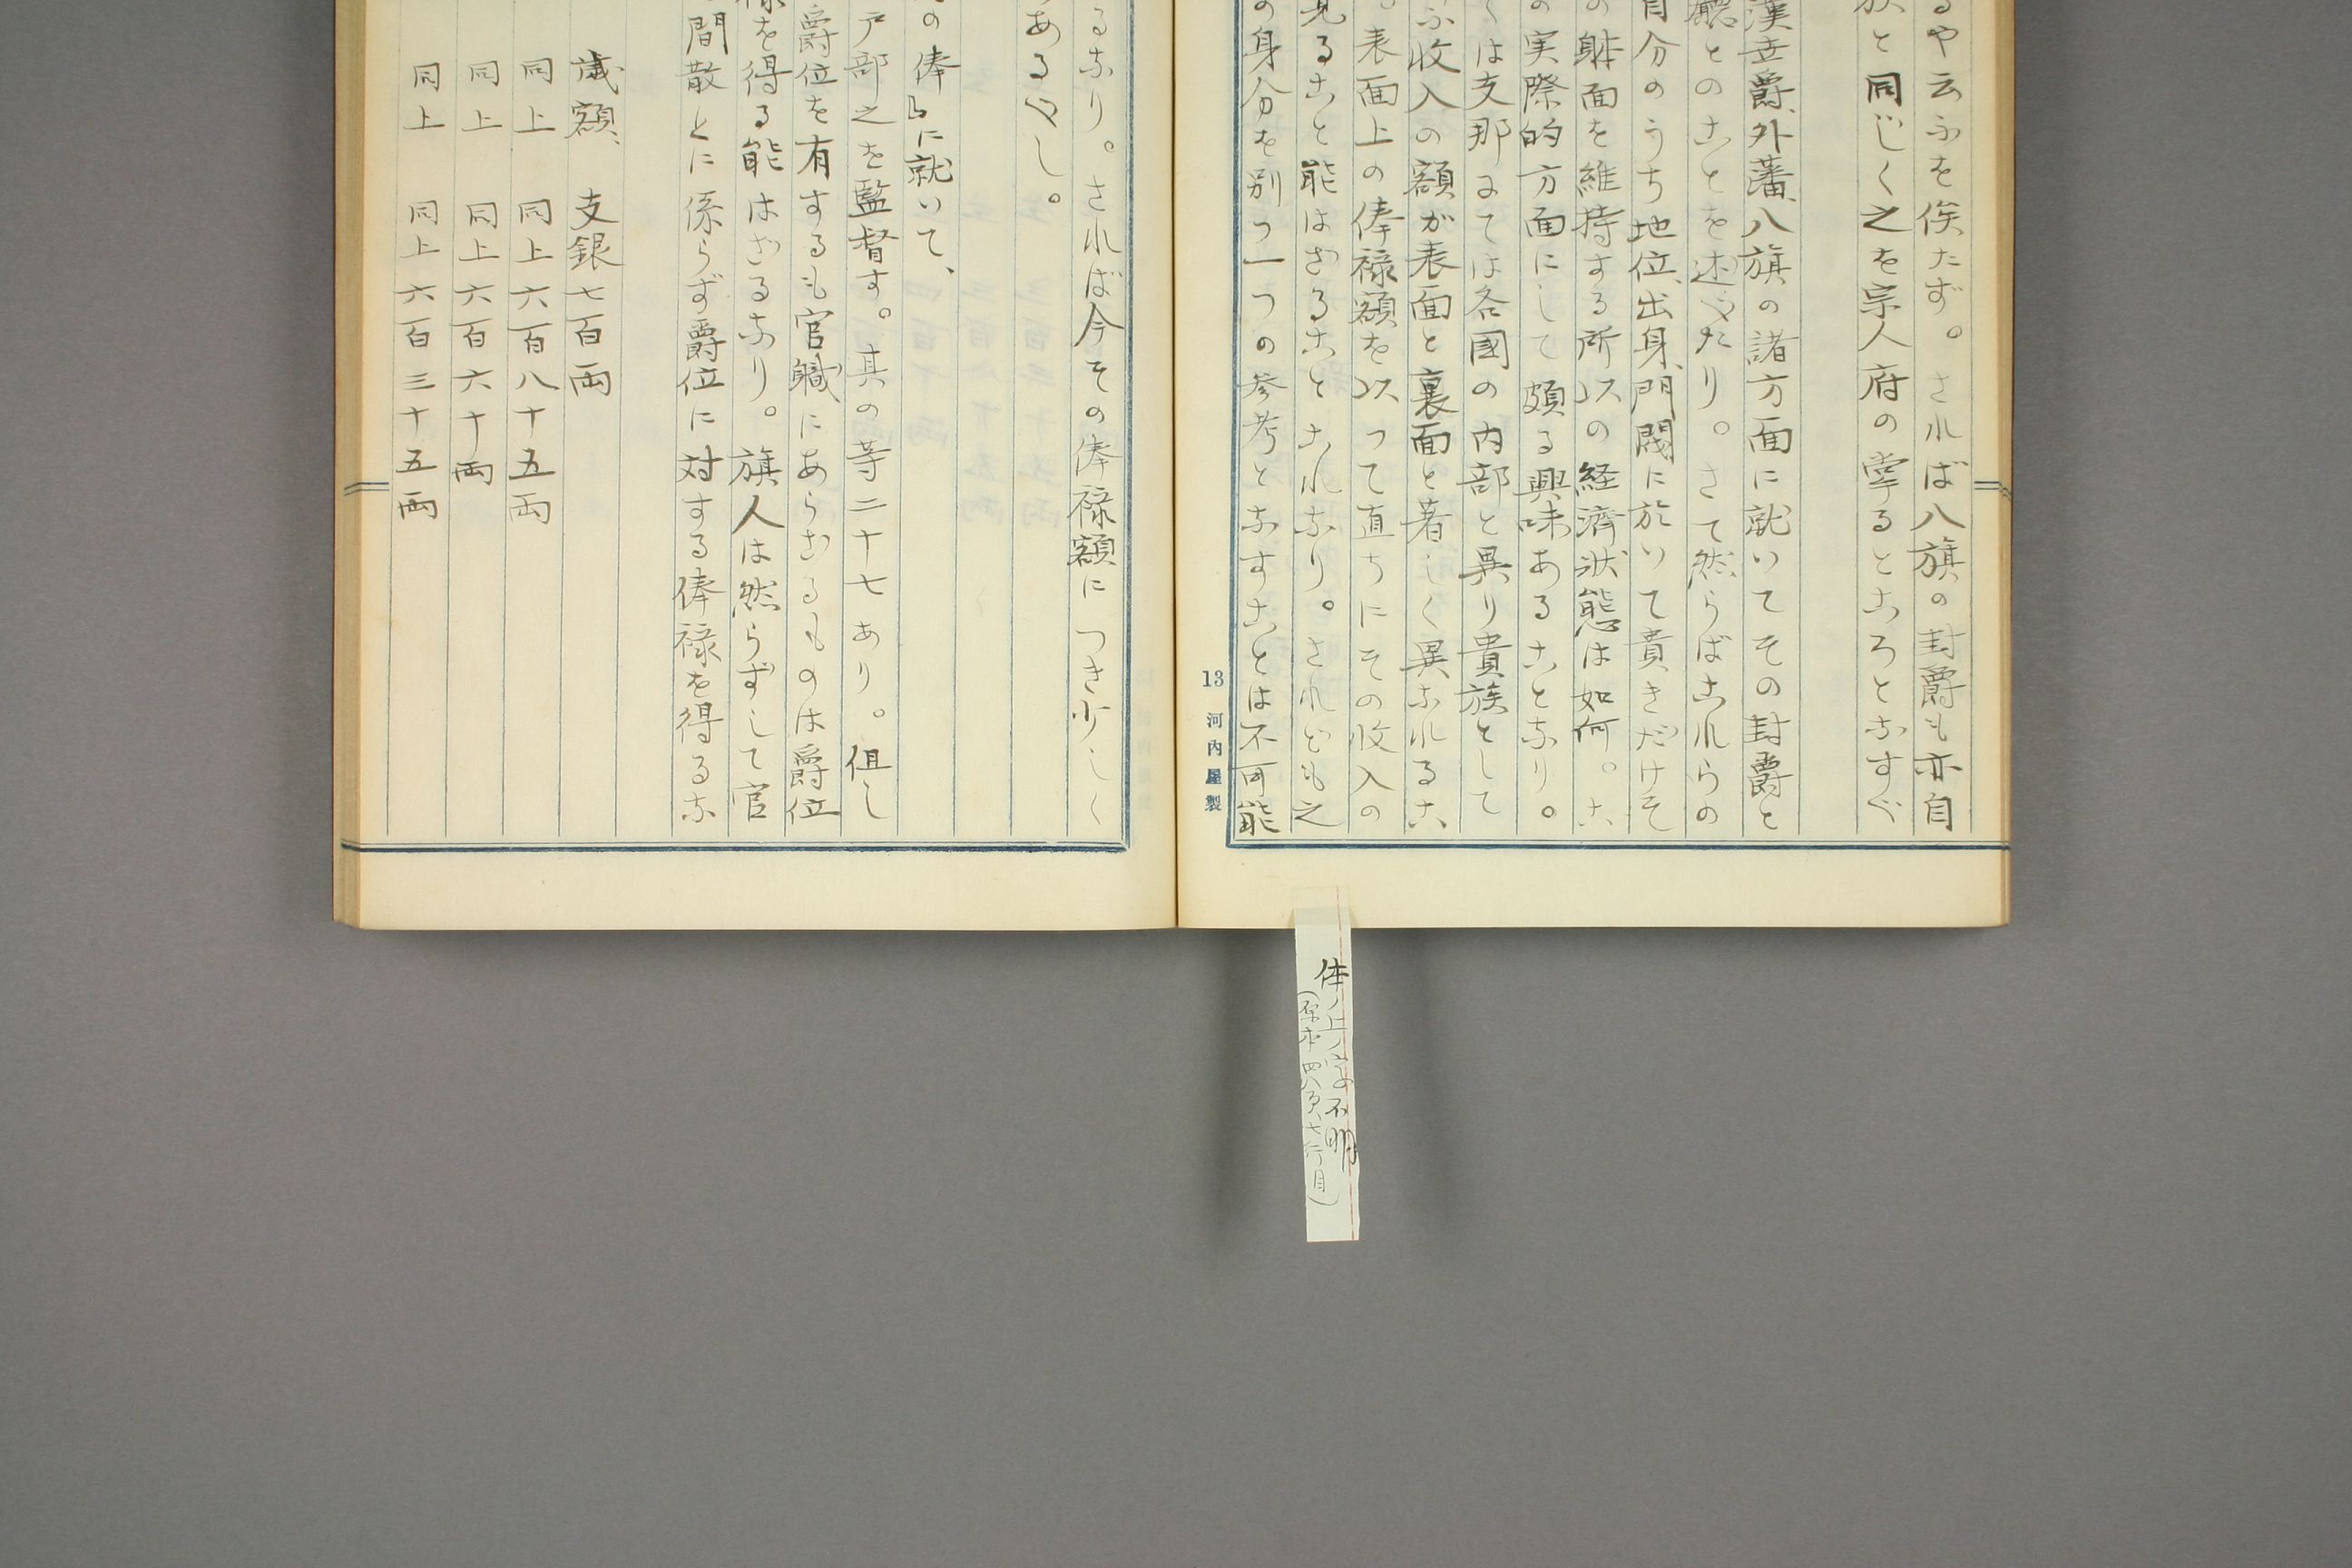 るや云ふを俟たず。されば八旗の封爵も亦自
族と同じく之を宗人府の掌るところとなすべ
漢世爵、外藩、八旗の諸方面に就いてその封爵と
廳とのことを述べたり。さて然らばこれらの
自分のうち地位、出身、門閥に於いて貴きだけそ
の躰面を維持する所以の経済状態は如何。こ
の実際的方面にして頗る興味あることなり。
くは支那にては各國の内部と異り貴族として
ふ收入の額が表面と裏面と著しく異なれるこ
。表面上の俸禄額を以つて直ちにその收入の
見ること能はざることこれなり。されども之
の身分を別つ一つの参考となすことは不可能
13 河内屋製
るなり。されば今その俸禄額につき少しく
あるべし。
の俸』に就いて、
戸部之を監督す。其の等二十七あり。但し
爵位を有するも官職にあらざるものは爵位
禄を得る能はざるなり。旗人は然らずして官
間散とに係らず爵位に対する俸禄を得るな
歳額、 支銀七百両
同上 同上六百八十五両
同上 同上六百六十両
同上 同上六百三十五両
体ノ上ノ字不明
(原本四八頁、七行目)